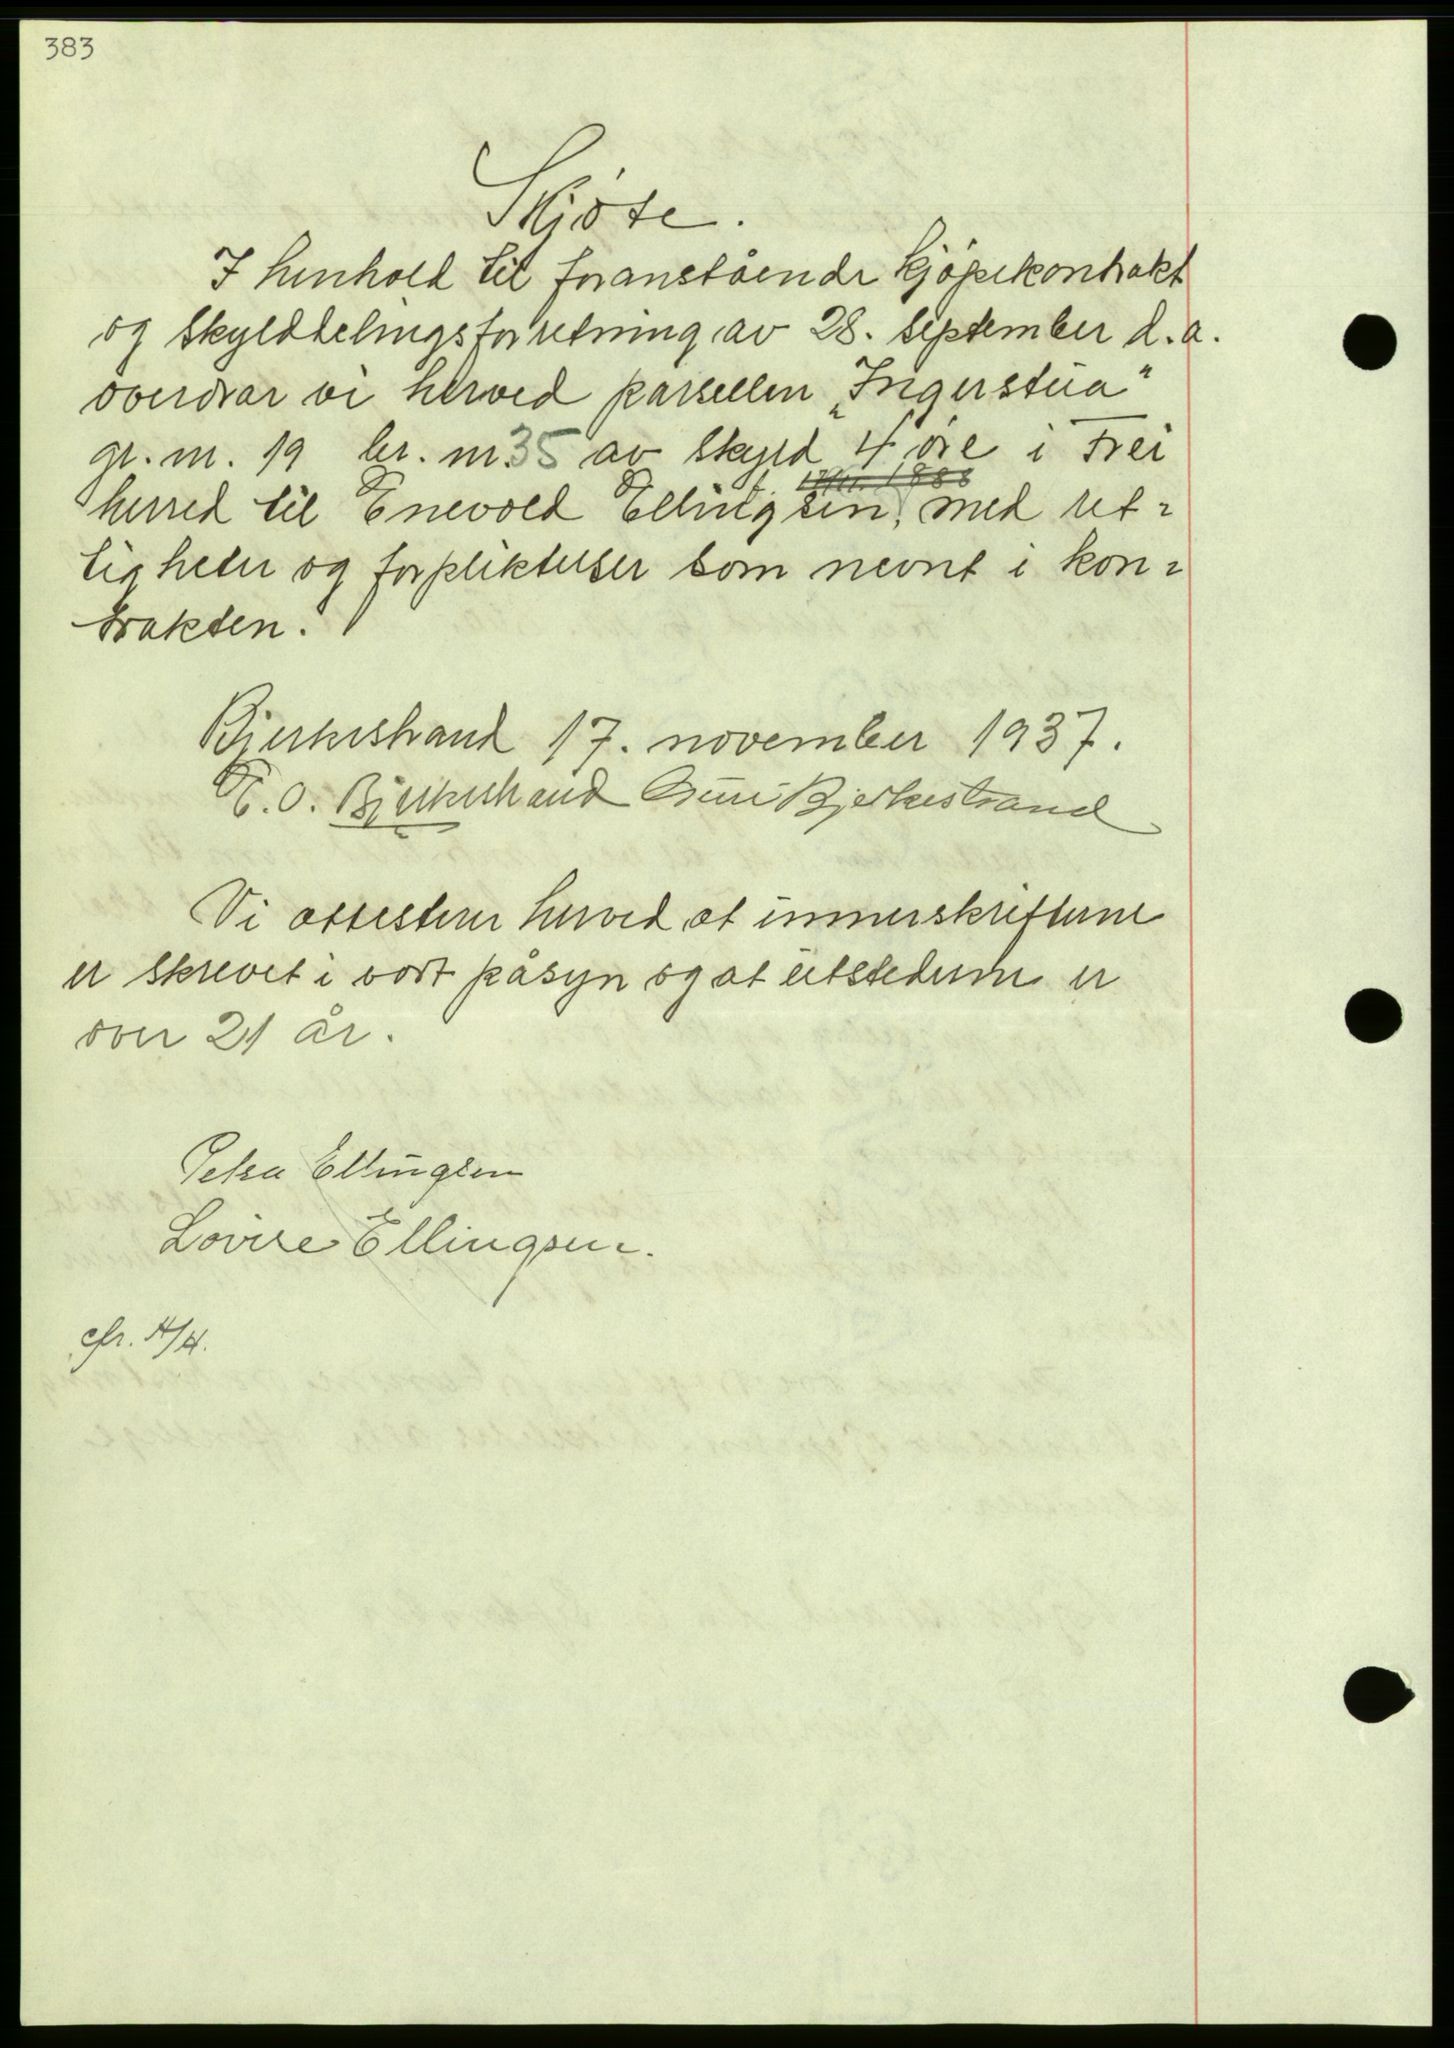 383
Skjöte.
I henhold til foranstående kjöpekontrakt
og skylddelingsforretning av 28. september d.a.
overdrar vi herved parsellen „Ingerstua"
gr. nr. 19 br. nr. 35 av skyld 4 øre i Frei
herred til Enevold Ellingsen, med ret-
tigheter og forpliktelser som nevnt i kon-
trakten.
Bjerkestrand 17. november 1937.
O. Bjerkestrand Guri Bjerkestrand
Vi attesterer herved at unnerskrifterne
er skrevet i vort påsyn og at utstederne er
over 21 år.
Petra Ellingsen
Lovise Ellingsen.
cfr.